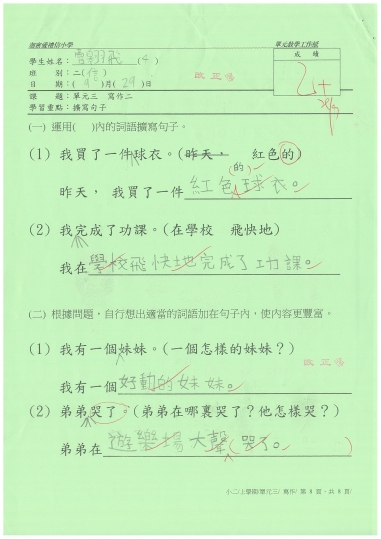 單元教學工作紙
學生姓名：(4)
成績
班 別：二(信)
日 期：(9)月(29)日
改正
課 題：單元三 寫作二
學習重點：擴寫句子
(一) 運用( )內的詞語擴寫句子。
(1) 我買了一件球衣。(昨天， 紅色的)
(的)
昨天， 我買了一件紅色球衣。
(2) 我完成了功課。(在學校 飛快地)
我在學校飛快地完成了功課。
(二) 根據問題，自行想出適當的詞語加在句子內，使內容更豐富。
(1) 我有一個妹妹。(一個怎樣的妹妹？)
改正
我有一個好動的妹妹。
(2) 弟弟哭了。(弟弟在哪裏哭了？他怎樣哭？)
弟弟在遊樂場大聲(哭了。 )
小二/上學期/單元三/ 寫作/ 第 8 頁，共 8 頁/